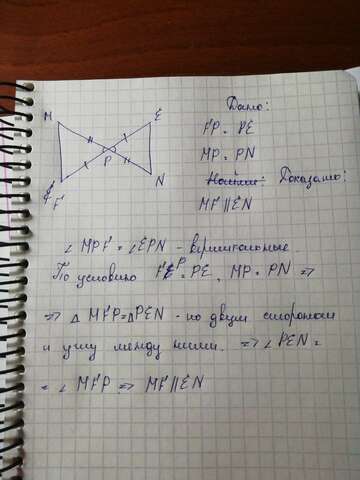 M
E
P
F
N
Дано:
FP = PE
MP = PN
Доказать:
MF || EN
∠ MPF = ∠ EPN - вертикальные.
По условию FP = PE, MP = PN =>
=> △ MFP = △ PEN - по двум сторонам
и углу между ними. => ∠ PEN =
= ∠ MFP => MF || EN